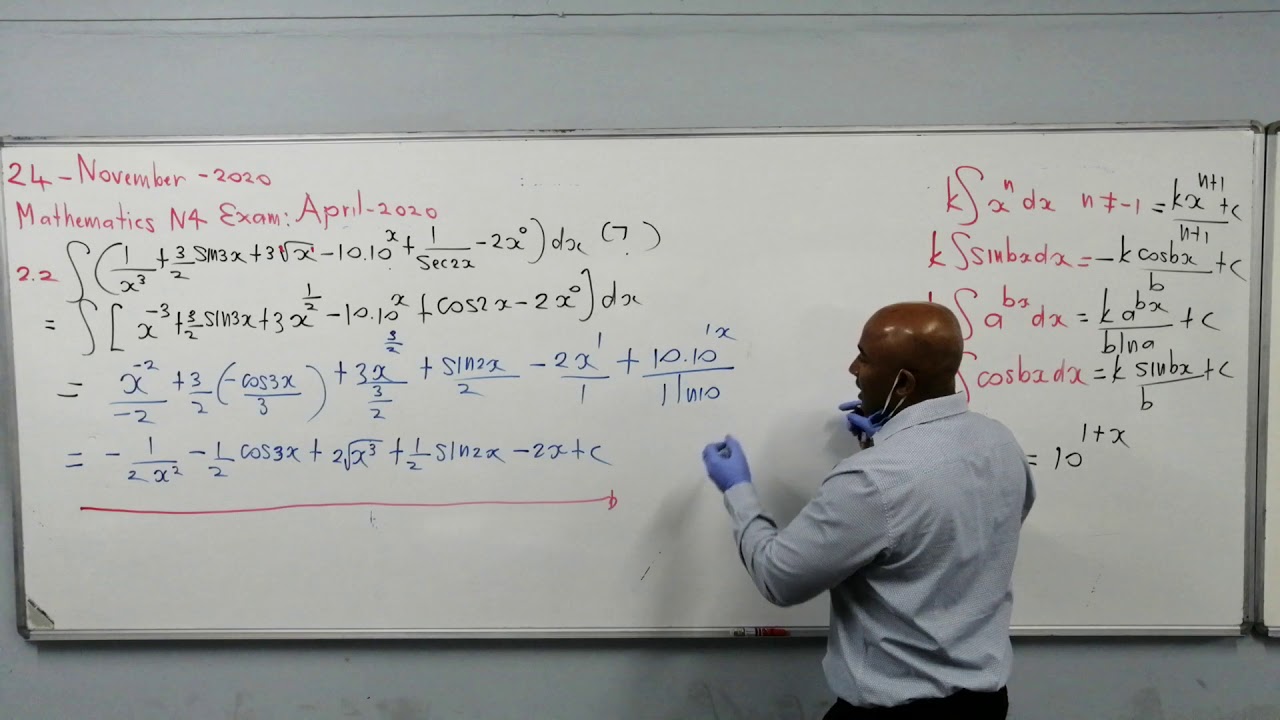 24 - November - 2020
Mathematics N4 Exam: April - 2020
2.2 ∫(1/x³ + 3/2 sin3x + 3√x - 10.10^x + 1/sec2x - 2x⁰)dx (7)
= ∫[x^-3 + 3/2 sin3x + 3x^1/2 - 10.10^x + cos2x - 2x⁰]dx
= x^-2/-2 + 3/2(-cos3x/3) + 3x^3/2/(3/2) + sin2x/2 - 2x^1/1 + 10.10^1x/1 ln10
= -1/2x² - 1/2 cos3x + 2√x³ + 1/2 sin2x - 2x + c
k∫x^n dx n≠-1 = kx^n+1/n+1 + c
k∫sinbxdx = -k cosbx/b + c
∫a^bx dx = k a^bx/b ln a + c
∫cosbxdx = k sinbx/b + c
= 10^1+x